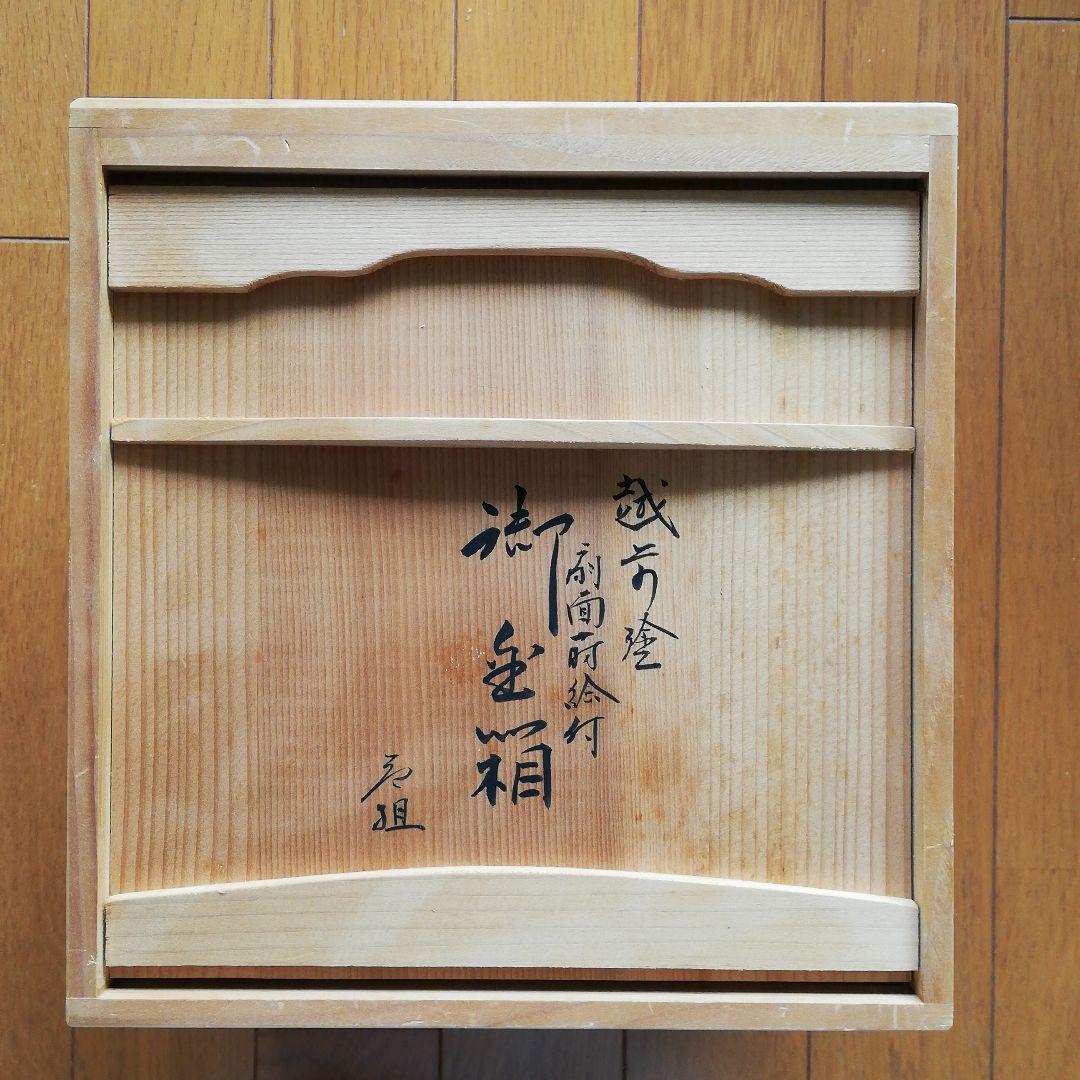 越前塗
扇面蒔絵付
御重箱
壱組